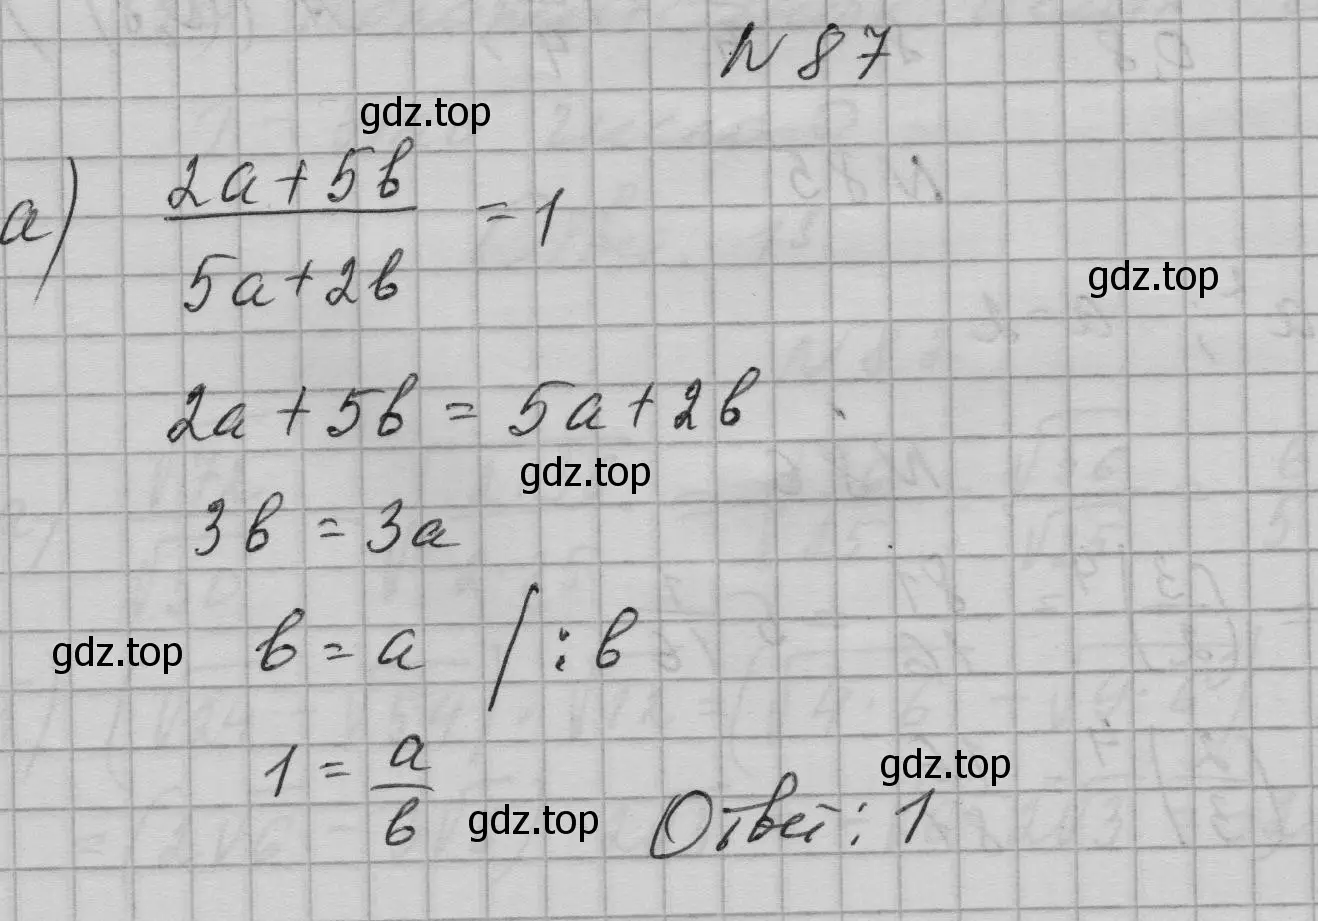 N 87
gdz.top
a) (2a+5b)/(5a+2b) = 1
gdz.top
2a + 5b = 5a + 2b
gdz.top
3b = 3a
gdz.top
b = a / : b
1 = a/b
gdz.top
gdz.top
Ответ: 1